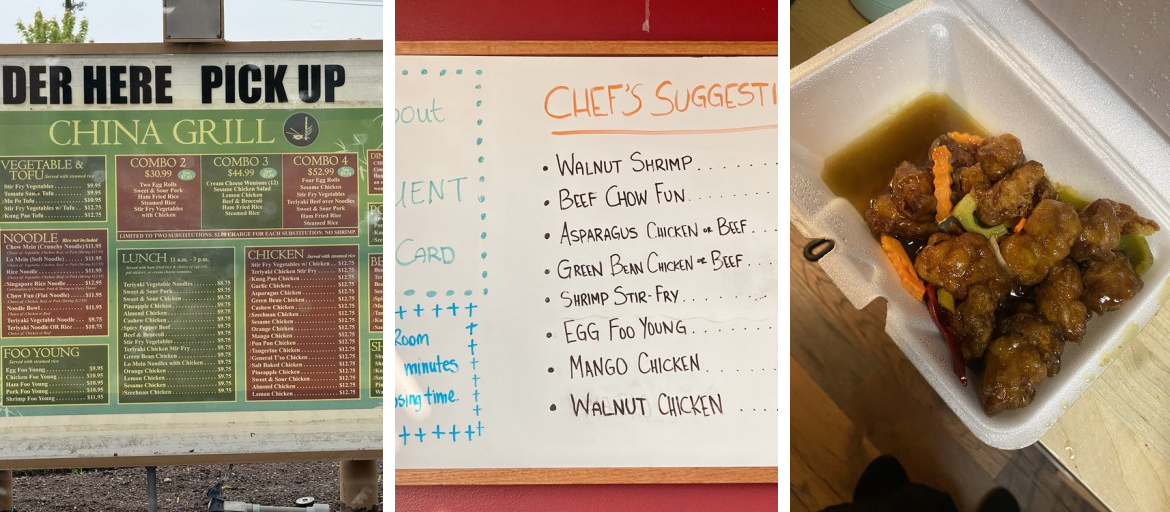 DER HERE PICK UP
CHINA GRILL
VEGETABLE &
TOFU Served with steamed rice
Stir Fry Vegetables $9.95
Ma Po Tofu $10.95
Stir Fry Vegetables w/ Tofu $12.75
Kung Pao Tofu $12.75
NOODLE Rice not included
Chow Mein (Crunchy Noodle) $11.95
Lo Mein (Soft Noodle) $11.95
Rice Noodle $11.95
Singapore Rice Noodle $12.95
Chow Fun (Flat Noodle) $11.95
Noodle Bowl
Teriyaki Vegetable Noodle $9.75
Teriyaki Noodle OR Rice $10.75
FOO YOUNG
Served with steamed rice
Egg Foo Young $9.95
Chicken Foo Young $10.95
Ham Foo Young $10.95
Pork Foo Young $10.95
Shrimp Foo Young $11.95
COMBO 2
$30.99
Two Egg Rolls
Sweet & Sour Pork
Ham Fried Rice
Steamed Rice
Stir Fry Vegetables
with Chicken
COMBO 3
$44.99
Cream Cheese Wontons (12)
Sesame Chicken Salad
Lemon Chicken
Beef & Broccoli
Ham Fried Rice
Steamed Rice
COMBO 4
$52.99
Four Egg Rolls
Sesame Chicken
Stir Fry Vegetables
Teriyaki Beef over Noodles
Sweet & Sour Pork
Ham Fried Rice
Steamed Rice
LIMITED TO TWO SUBSTITUTIONS. $2.00 CHARGE FOR EACH SUBSTITUTION, NO SHRIMP.
LUNCH 11 a.m. - 3 p.m.
Teriyaki Vegetable Noodles $8.75
Sweet & Sour Pork $9.75
Sweet & Sour Chicken $9.75
Pineapple Chicken $9.75
Almond Chicken $9.75
Cashew Chicken $9.75
Spicy Pepper Beef $9.75
Beef & Broccoli $9.75
Stir Fry Vegetables $9.75
Teriyaki Chicken Stir Fry $9.75
Green Bean Chicken $9.75
Lo Mein Noodles with Chicken $9.75
Orange Chicken $9.75
Lemon Chicken $9.75
Sesame Chicken $9.75
Szechuan Chicken $9.75
CHICKEN Served with steamed rice
Stir Fry Vegetables w/ Chicken $12.75
Teriyaki Chicken Stir Fry $12.75
Kung Pao Chicken $12.75
Garlic Chicken $12.75
Asparagus Chicken $12.75
Green Bean Chicken $12.75
Cashew Chicken $12.75
Szechuan Chicken $12.75
Sesame Chicken $12.75
Orange Chicken $12.75
Mango Chicken $12.75
Pon Pon Chicken $12.75
Tangerine Chicken $12.75
General T'so Chicken $12.75
Salt Baked Chicken $12.75
Pineapple Chicken $12.75
Sweet & Sour Chicken $12.75
Almond Chicken $12.75
Lemon Chicken $12.75
bout
UENT
CARD
Room
minutes
osing time.
CHEF'S SUGGESTI
• WALNUT SHRIMP.......
• BEEF CHOW FUN.......
• ASPARAGUS CHICKEN OR BEEF...
• GREEN BEAN CHICKEN OR BEEF...
• SHRIMP STIR-FRY.......
• EGG FOO YOUNG.......
• MANGO CHICKEN.......
• WALNUT CHICKEN ....